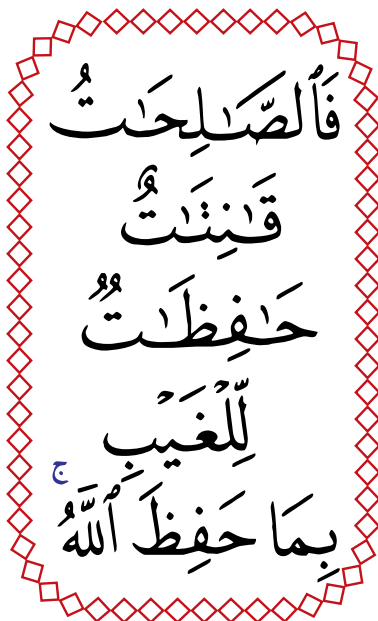 فَٱلصَّـٰلِحَـٰتُ
قَـٰنِتَـٰتٌ
حَـٰفِظَـٰتٌ
لِّلْغَيْبِ ج
بِمَا حَفِظَ ٱللَّهُ